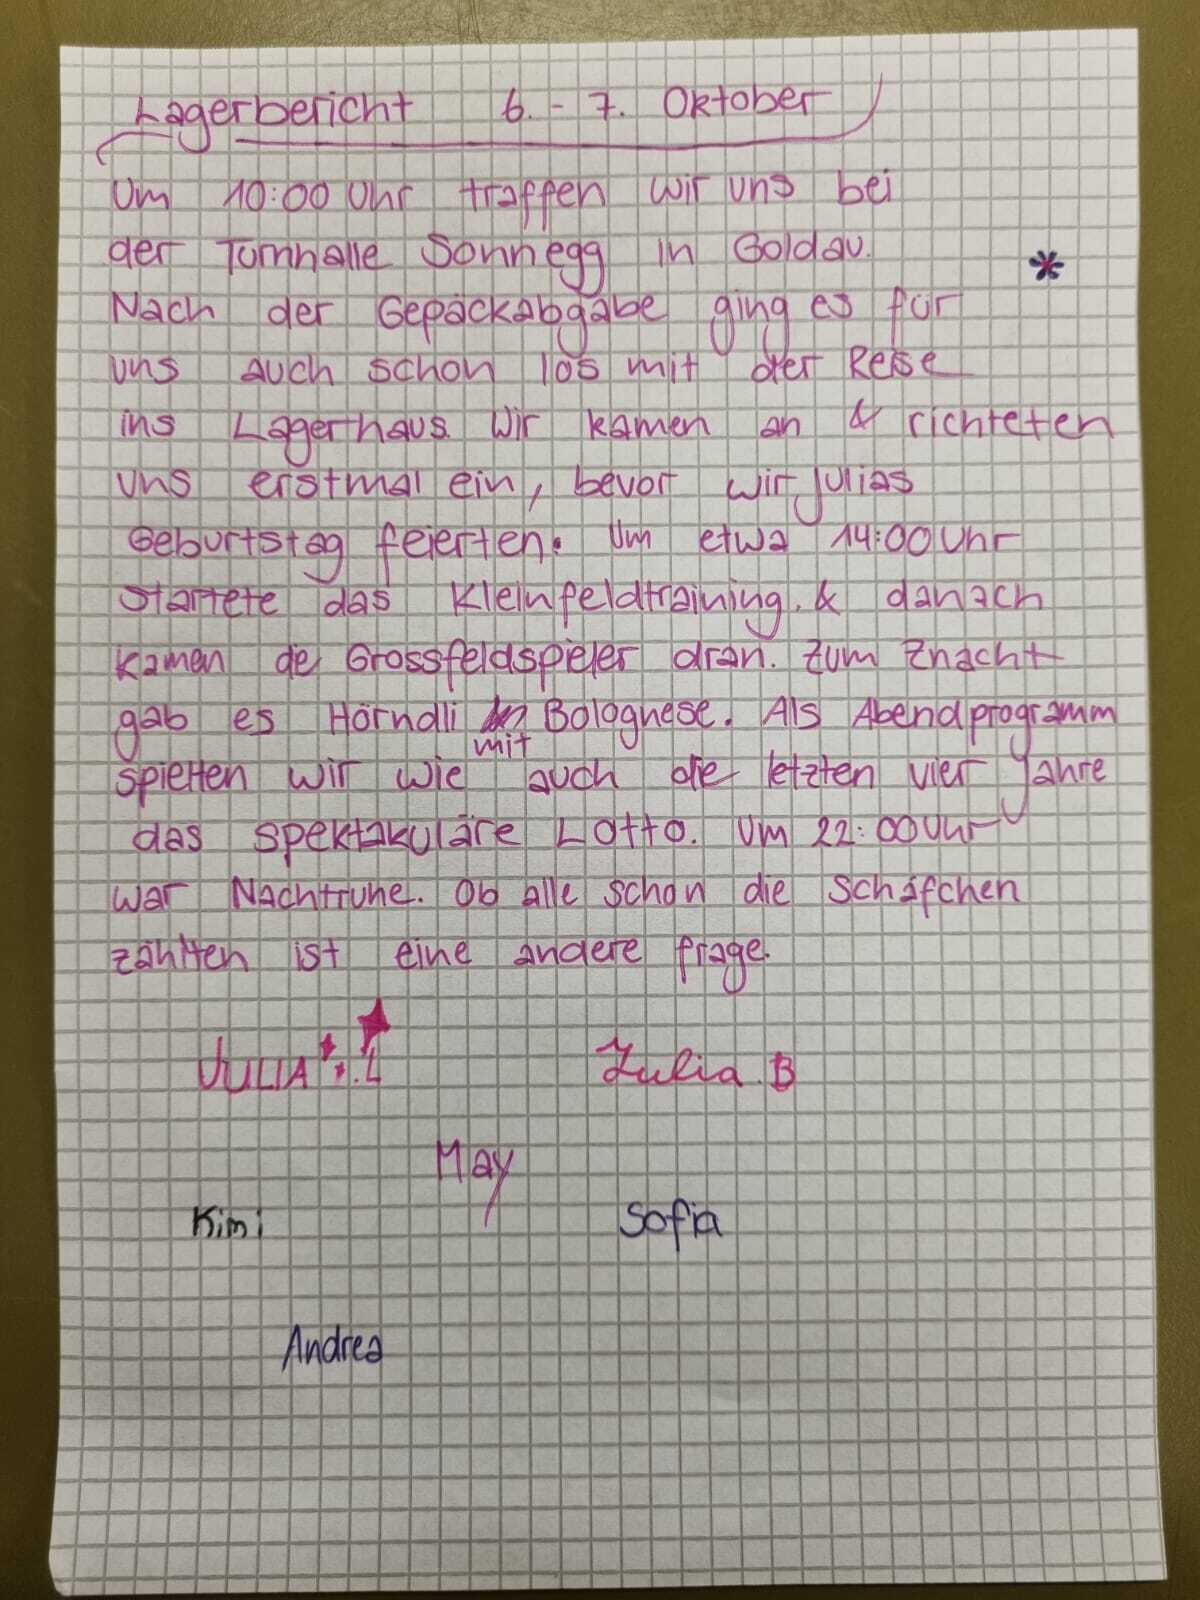 Lagerbericht 6. - 7. Oktober
Um 10:00 Uhr traffen wir uns bei
der Turnhalle Sonnegg in Goldau.
Nach der Gepäckabgabe ging es für
uns auch schon los mit der Reise
ins Lagerhaus. Wir kamen an & richteten
uns erstmal ein, bevor wir Julias
Geburtstag feierten. Um etwa 14:00 Uhr
startete das Kleinfeldtraining. & danach
kamen die Grossfeldspieler dran. Zum Znacht
gab es Hörndli mit Bolognese. Als Abendprogramm
spielten wir wie auch die letzten vier Jahre
das spektakuläre Lotto. Um 22:00 Uhr
war Nachtruhe. Ob alle schon die Schäfchen
zählten ist eine andere frage.
JULIA .L Julia.B
May
Kimi Sofia
Andrea